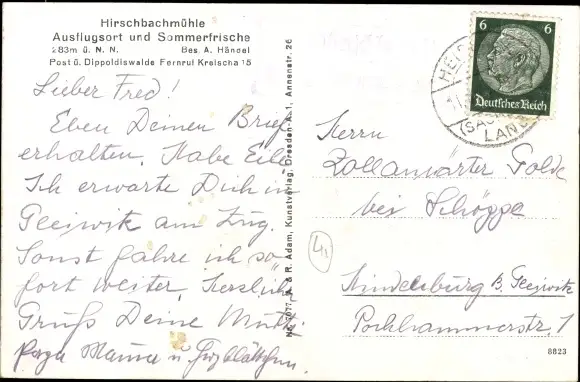 Hirschbachmühle
Ausflugsort und Sommerfrische
283m ü. N. N. Bes. A. Händel
Post ü. Dippoldiswalde Fernruf Kreischa 15
Lieber Fred!
Eben Deinen Brief
erhalten. Habe Eile
Ich erwarte Dich in
Gleiwitz am Zug.
Sonst fahre ich so
fort weiter. Herzlich
Gruß Deine Mutti
Papa Mama u.
& R. Adam, Kunstverlag, Dresden-A. 1, Annenstr. 26
6 6
Deutsches Reich
LAND
Herrn
Zollanwärter Golde
bei Schöppe
Hindenburg b. Gleiwitz
Pochhammerstr. 1
8823